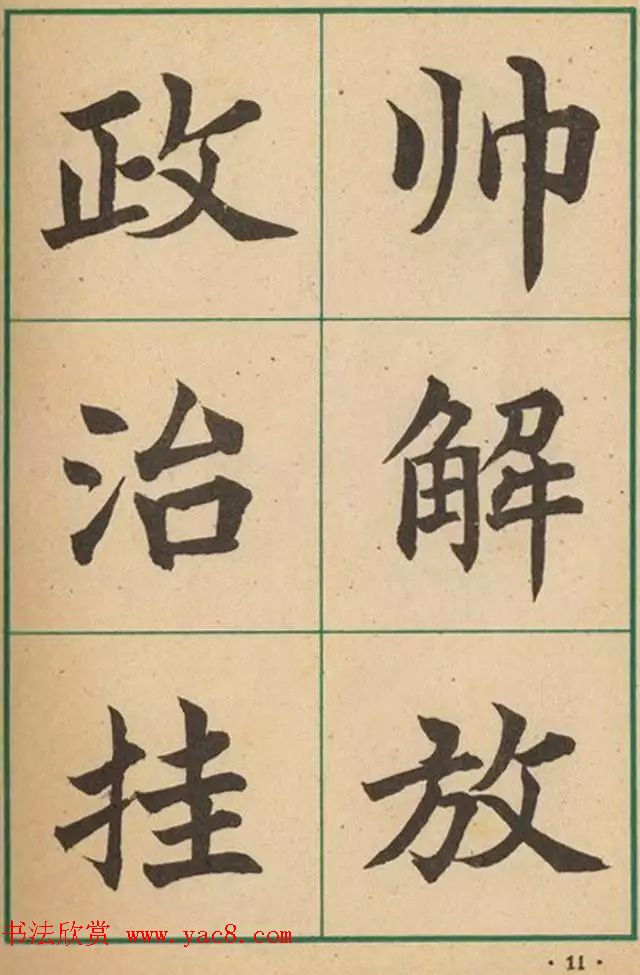 政治挂
帅解放
书法欣赏 www.yac8.com
· 11 ·